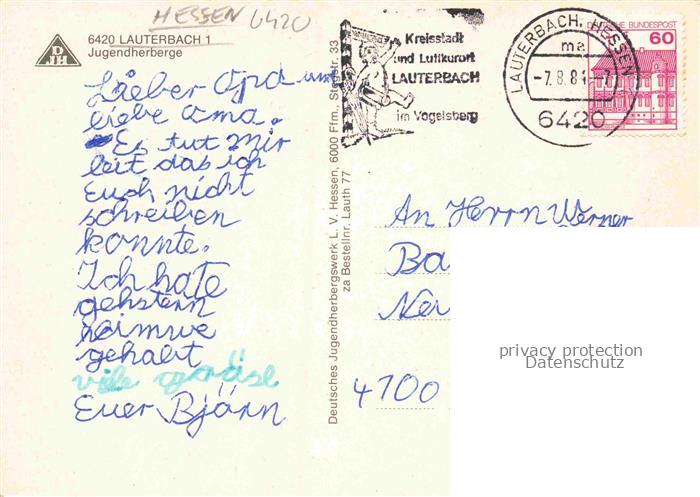 HESSEN 6420
6420 LAUTERBACH 1
Jugendherberge
DJH
Lieber Opa und
liebe Oma.
Es tut mir
leit das ich
Euch nicht
schreiben
konnte.
Ich hate
gehstern
heimwe
gehabt
viele grüse
Euer Björn
Deutsches Jugendherbergswerk L. V. Hessen, 6000 Ffm., Stegstr. 33
za Bestellnr. Lauth 77
Kreisstadt
und Luftkurort
LAUTERBACH
im Vogelsberg
LAUTERBACH, HESSEN
ma
-7.8.84-7
6420
DEUTSCHE BUNDESPOST
60
An Herrn Werner
Ba
4100
privacy protection
Datenschutz